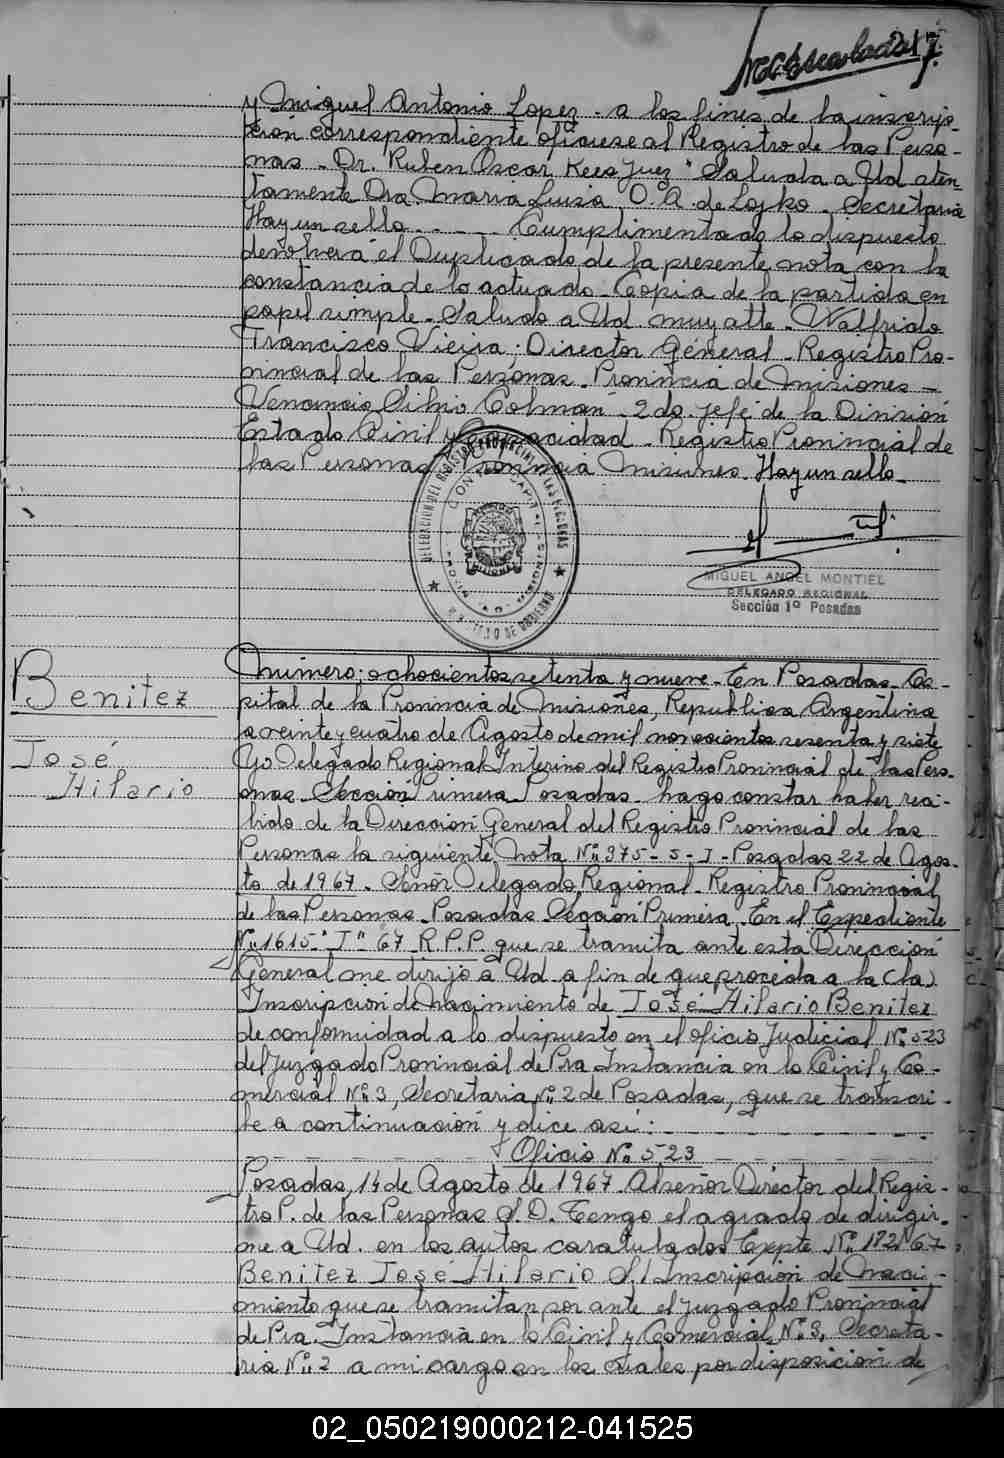 217
y Miguel Antonio Lopez - a los fines de la inscrip-
ción correspondiente ofíciese al Registro de las Perso-
nas - Dr. Ruben Oscar Kees Juez " Saluda a Ud aten
tamente Dra Maria Luisa O. A. de Lojko - Secretaria
Hay un sello. - - - - - Cumplimentado lo dispuesto
devolverá el Duplicado de la presente nota con la
constancia de lo actuado - Copia de la partida en
papel simple - Saludo a Ud. muy atte - Walfrido
Francisco Vieyra; Director General - Registro Pro-
vincial de las Personas - Provincia de Misiones -
Venancio Silvio Colman - 2do. Jefe de la División
Estado Civil y Capacidad - Registro Provincial de
las Personas Provincia Misiones. Hay un sello -
DELEGACION DEL REGISTRO PROVINCIAL DE LAS PERSONAS
MISIONES
MIGUEL ANGEL MONTIEL
DELEGADO REGIONAL
Sección 1º Posadas
Benitez
José
Hilario
Número: ochocientos setenta y nueve - En Posadas Ca-
pital de la Provincia de Misiones, Republica Argentina
a veinte y cuatro de Agosto de mil novecientos sesenta y siete
Yo Delegado Regional Interino del Registro Provincial de las Pers-
onas Sección Primera Posadas - hago constar haber reci-
bido de la Dirección General del Registro Provincial de las
Personas la siguiente Nota Nº 375 - S - I - Posadas 22 de Agos-
to de 1967 - Señor Delegado Regional - Registro Provincial
de las Personas - Posadas Sección Primera - En el Expediente
Nº 1615 " I " 67 R.P.P. que se tramita ante esta Dirección
General me dirijo a Ud a fin de que proceda a la (la)
Inscripción de Nacimiento de José Hilario Benitez
de conformidad a lo dispuesto en el oficio Judicial Nº 523
del Juzgado Provincial de Pra Instancia en lo Civil y Co-
mercial Nº 3, Secretaria Nº 2 de Posadas, que se transcri-
be a continuación y dice así:
Oficio Nº 523
Posadas, 14 de Agosto de 1967. Al señor Director del Regis-
tro P. de las Personas S. D. Tengo el agrado de dirigir-
me a Ud. en los autos caratulados Expte Nº 67
Benitez José Hilario S/ Inscripción de Naci-
miento que se tramitan por ante el Juzgado Provincial
de Pra. Instancia en lo Civil y Comercial Nº 3, Secreta-
ria Nº 2 a mi cargo en los cuales por disposición de
02_050219000212-041525